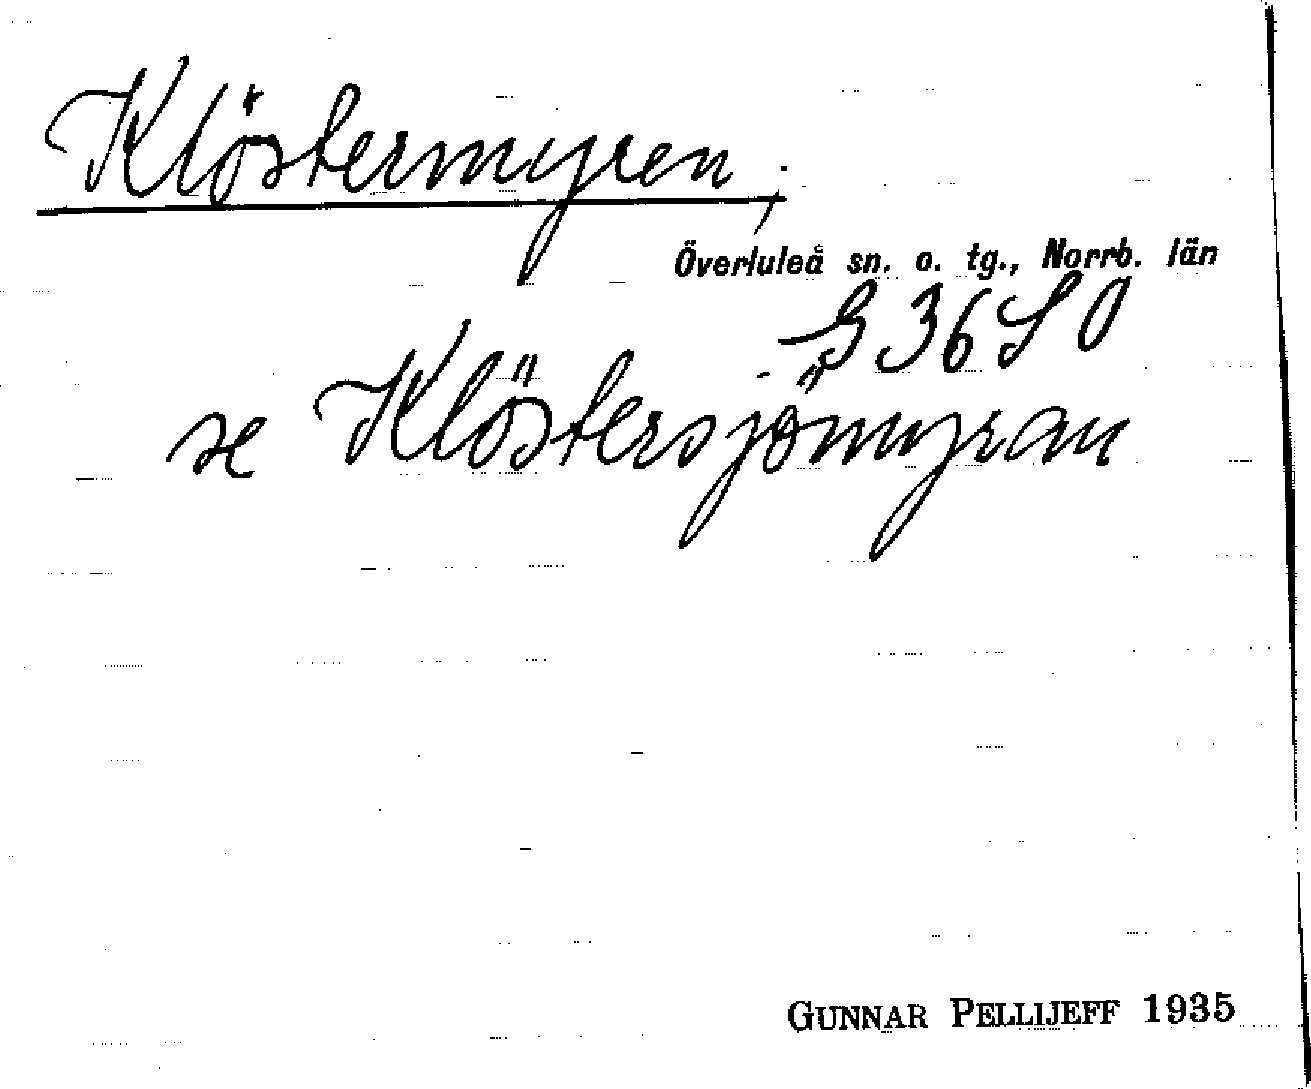 Klöstermyren;
Överluleå sn. o. tg., Norrb. län
B 36 S O
se Klöstersjömyran
GUNNAR PELLIJEFF 1935